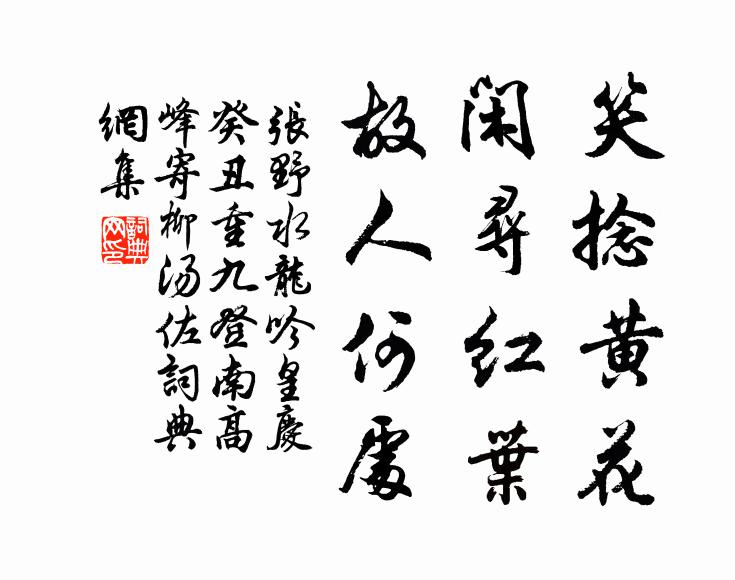 笑捻黄花
闲寻红葉
故人何處
張野水龍吟皇慶
癸丑重九登南高
峰寄柳湯佐詞典
網集
詞典網印